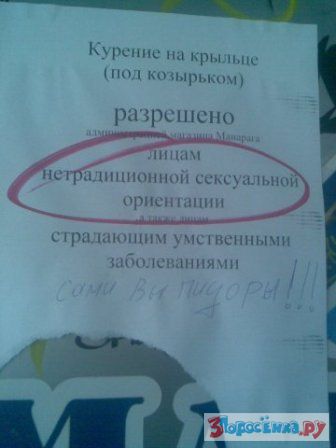 Курение на крыльце
(под козырьком)
разрешено
администрацией магазина Манарага
лицам
нетрадиционной сексуальной
ориентации
а также лицам
страдающим умственными
заболеваниями
сами вы пидоры!!!
3Поросёнка.ру